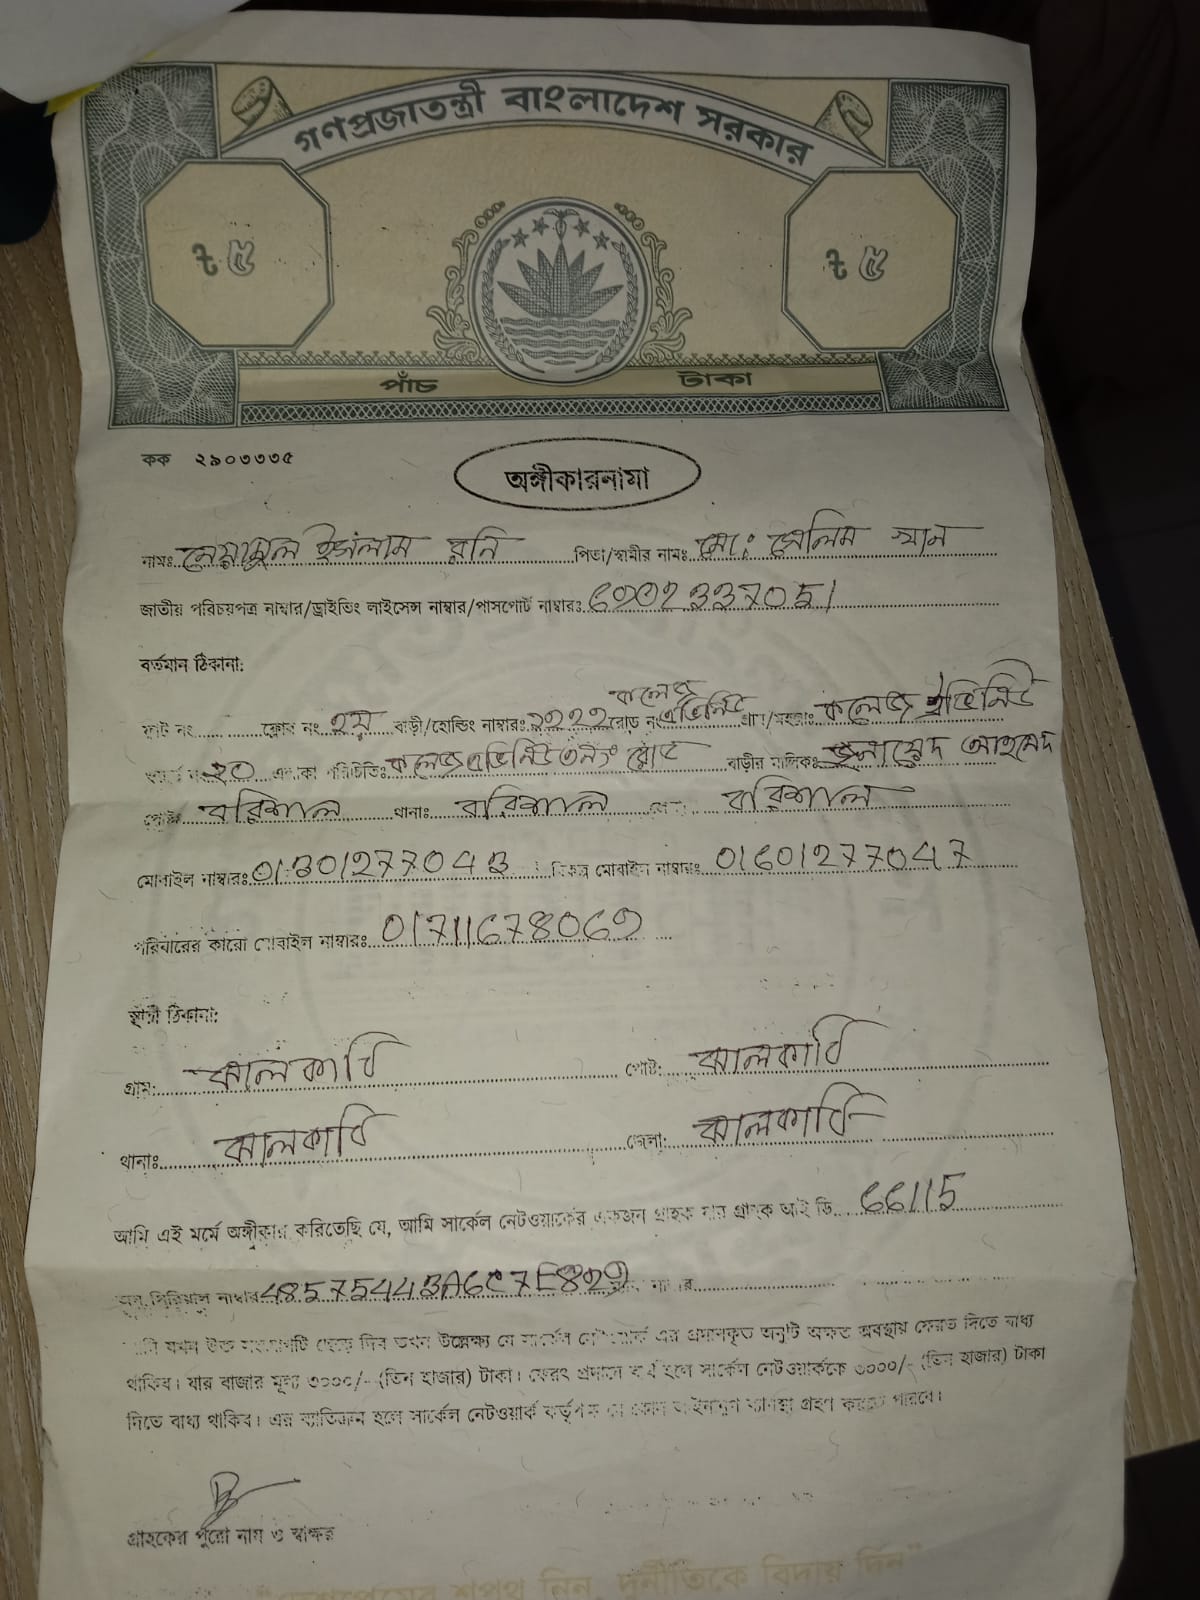 গণপ্রজাতন্ত্রী বাংলাদেশ সরকার
৳ ৫ ৳ ৫
পাঁচ টাকা
কক ২৯০৩৩৩৫
অঙ্গীকারনামা
নামঃ নেয়ামুল ইসলাম রনি পিতা/স্বামীর নামঃ মো: সেলিম খান
জাতীয় পরিচয়পত্র নাম্বার/ড্রাইভিং লাইসেন্স নাম্বার/পাসপোর্ট নাম্বারঃ
বর্তমান ঠিকানা:
কলেজ
ফ্লাট নং ফ্লোর নং ২য় বাড়ী/হোল্ডিং নাম্বারঃ রোড নং এভিনিউ গ্রাম/মহল্লাঃ কলেজ এভিনিউ
২০ এলাকা পরিচিতিঃ কলেজ এভিনিউ ৩নং রোড বাড়ীর মালিকঃ আহমেদ
পোষ্ট বরিশাল থানাঃ বরিশাল বরিশাল
মোবাইল নাম্বারঃ 01301277043 বিকল্প মোবাইল নাম্বারঃ 01601277047
পরিবারের কারো মোবাইল নাম্বারঃ
স্থায়ী ঠিকানা:
গ্রাম: ঝালকাঠি পোষ্ট: ঝালকাঠি
থানাঃ ঝালকাঠি জেলা: ঝালকাঠি
আমি এই মর্মে অঙ্গীকার করিতেছি যে, আমি সার্কেল নেটওয়ার্কের একজন গ্রাহক যার গ্রাহক আই ডি 66115
সিরিয়াল নাম্বার
যখন উক্ত ছেড়ে দিব তখন উল্লেক্ষ্য যে সার্কেল নেটওয়ার্ক এর প্রদানকৃত অনুটি অক্ষত অবস্থায় ফেরত দিতে বাধ্য
থাকিব। যার বাজার মূল্য ৩০০০/- (তিন হাজার) টাকা। ফেরৎ প্রদানে ব্যর্থ হলে সার্কেল নেটওয়ার্ককে ৩০০০/- (তিন হাজার) টাকা
দিতে বাধ্য থাকিব। এর ব্যতিক্রম হলে সার্কেল নেটওয়ার্ক কর্তৃপক্ষ যে কোন আইনানুগ ব্যবস্থা গ্রহণ করতে পারবে।
গ্রাহকের পুরো নাম ও স্বাক্ষর
"দেশপ্রেমের শপথ নিন, দুর্নীতিকে বিদায় দিন"